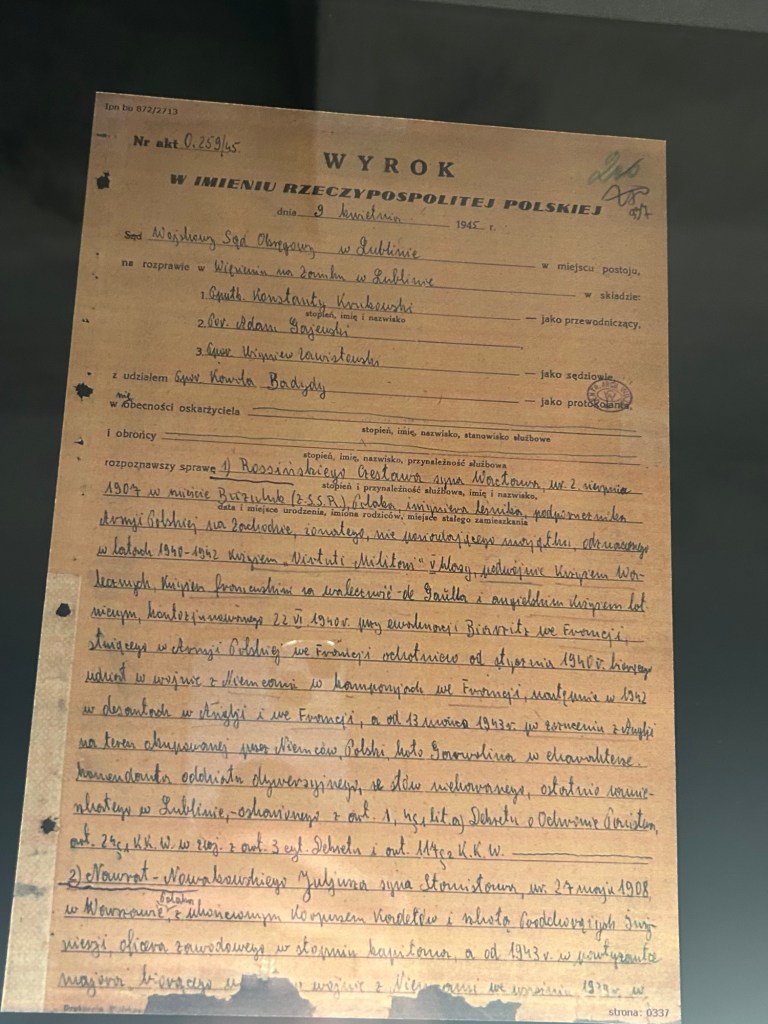 Ipn bu 872/2713
Nr akt O.259/45.
WYROK
W IMIENIU RZECZYPOSPOLITEJ POLSKIEJ
dnia 9 kwietnia 1945 r.
Sąd Wojskowy Sąd Okręgowy w Lublinie w miejscu postoju,
na rozprawie w Więzieniu na Zamku w Lublinie w składzie:
1. Konstanty Krukowski — jako przewodniczący,
stopień, imię i nazwisko
2. Por. Adam Gajewski
3. Zbigniew — jako sędziowie
z udziałem Karola Badydy — jako protokolanta,
w nieobecności oskarżyciela
stopień, imię, nazwisko, stanowisko służbowe
i obrońcy
stopień, imię, nazwisko, przynależność służbowa
rozpoznawszy sprawę 1) Rossińskiego Czesława syna Wacława, ur. 2. sierpnia
stopień i przynależność służbowa, imię i nazwisko,
1907 w mieście (Z.S.S.R.), Polaka, inżyniera leśnika, podporucznika
data i miejsce urodzenia, imiona rodziców, miejsce stałego zamieszkania
Armji Polskiej na Zachodzie, żonatego, nie posiadającego majątku, odznaczonego
w latach 1940-1942 Krzyżem „Virtuti Militari” V klasy, podwójnie Krzyżem Wa-
lecznych, Krzyżem francuskim za waleczność de Gaulla i angielskim Krzyżem lot-
niczym, kontuzjowanego 22 VI 1940 r. przy ewakuacji Biarritz we Francji,
służącego w Armji Polskiej we Francji ochotniczo od stycznia 1940 r. biorącego
udział w wojnie z Niemcami w kampanjach we Francji, następnie w 1942
w desantach w Anglji i we Francji, a od 13 marca 1943 r. po zrzuceniu z Anglji
na teren okupowanej przez Niemców, Polski, koło Garwolina w charakterze
komendanta oddziału dywersyjnego, ze słów niekaranego, ostatnio zamie-
szkałego w Lublinie, oskarżonego z art. 1, Dekretu o Ochronie Państwa,
art. 24 K.K.W. w zw. z art. 3 cyt. Dekretu i art. 117 K.K.W.
2) Nawrat-Nowakowskiego Juljusza syna Stanisława, ur. 27 maja 1908,
w Warszawie, Polaka z ukończonym Korpusem Kadetów i szkołą Podchorążych Inż-
nierji, oficera zawodowego w stopniu kapitana, a od 1943 r. w
majora, biorącego wojnie z Niemcami we wrześniu 1939 r. w
strona: 0337